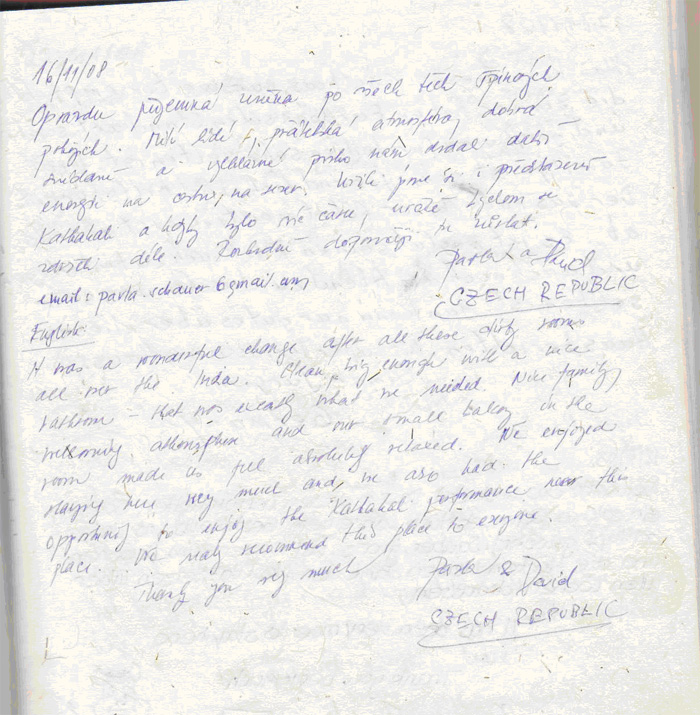 16/11/08
Opravdu příjemná změna po všech těch špinavých
pokojích. Milí lidé, přátelská atmosféra, dobrá
snídaně a nám dodal další
energii na cestu na sever. Užili jsme si i představení
Kathakali a kdyby bylo víc času, určitě bychom se
zdrželi déle. Rozhodně doporučuji tu zůstat.
Pavla a David
CZECH REPUBLIC
English:
It was a wonderful change after all these dirty rooms
all over the India. Clean, big enough with a nice
bathroom - that was exactly what we needed. Nice family,
atmosphere and our small balcony in the
room made us feel absolutely relaxed. We enjoyed
staying here very much and we also had the
opportunity to enjoy the Kathakali performance near this
place. We really recommend this place to everyone.
Thank you very much
Pavla & David
CZECH REPUBLIC